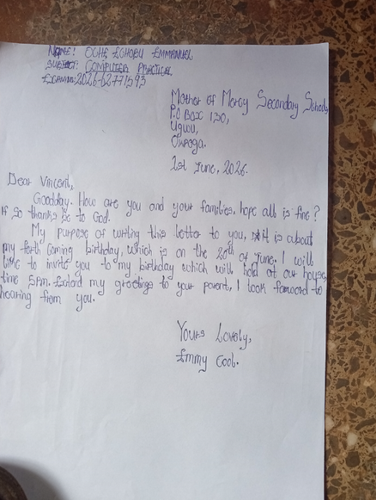 NAME: OCHE EGHOBU EMMANUEL
SUBJECT: COMPUTER PRACTICAL
EXAM NO: 2026-62771593
Mother of Mercy Secondary School,
P.O BOX 120,
Ugwu,
Owroga.
1st June, 2026.
Dear Vincent,
Goodday. How are you and your families, hope all is fine?
If so thanks be to God.
My purpose of writing this letter to you, it is about
my forth coming birthday, which is on the 20th of June. I will
like to invite you to my birthday which will hold at our house,
time 5pm. Extend my greetings to your parent, I look forward to
hearing from you.
Yours Lovely,
Emmy Cool.